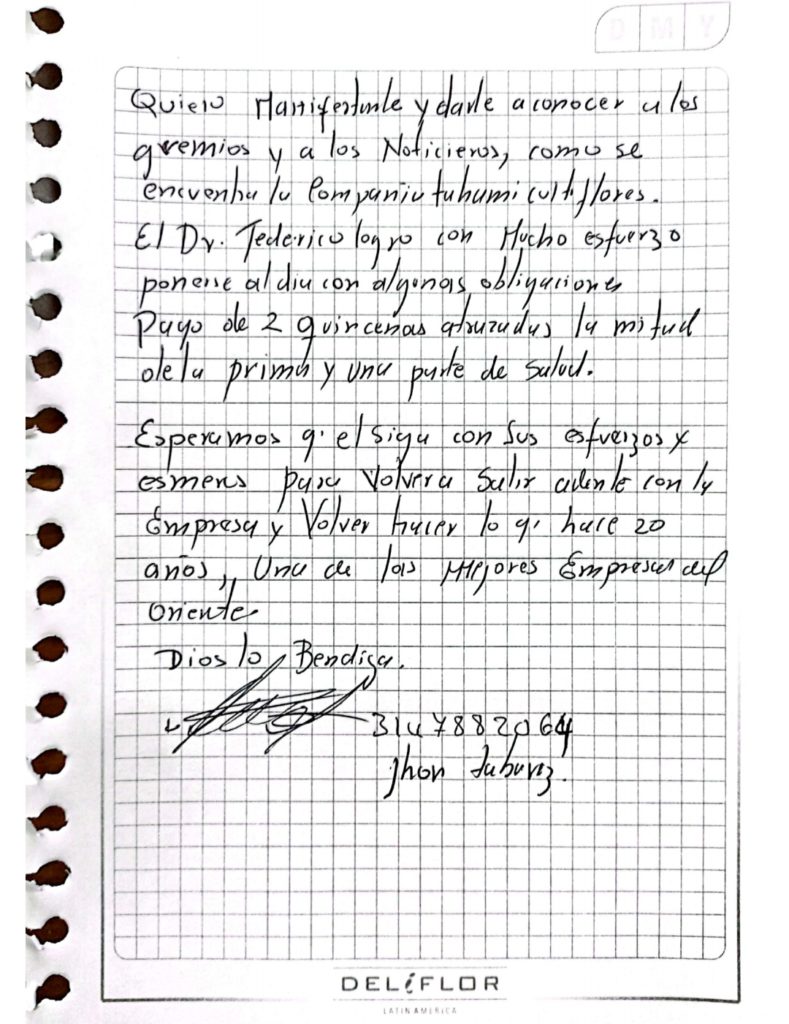 D M Y
Quiero Manifestarle y darle a conocer a los
gremios y a los Noticieros, como se
encuentra la Compañia tahami cultiflores.
El Dr. Federico logro con Mucho esfuerzo
ponerse al dia con algunas obligaciones
Pago de 2 quincenas atrazadas la mitad
de la prima y una parte de Salud.
Esperamos q' el siga con Sus esfuerzos y
esmeros para Volver a Salir adelnte con la
Empresa y Volver hacer lo q' hace 20
años,, Una de las Mejores Empresas del
Oriente
Dios lo Bendiga.
3147882064
Jhon
DELiFLOR
LATIN AMERICA